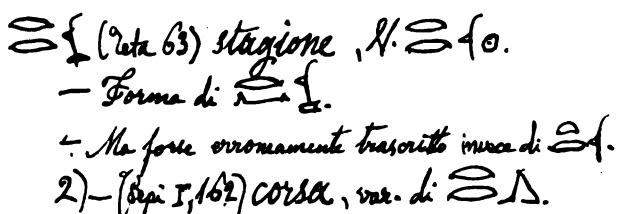 (Teta 63) stagione, N.
— Forma di
÷ Ma forse erroneamente trascritto invece di
2) — (Pepi I, 162) corsa, var. di